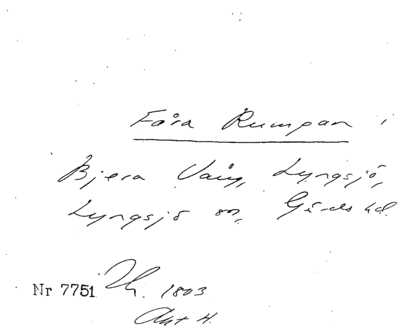 Fåra Rumpan i
Bjera Vång, Lyngsjö,
Lyngsjö sn, Gärds hd.
Nr 7751 1803
Akt H.